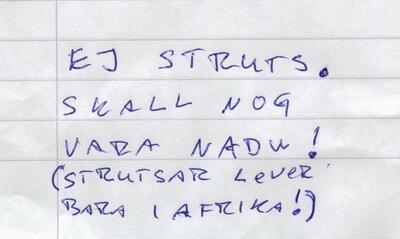 EJ STRUTS.
SKALL NOG
VARA NADU!
(STRUTSAR LEVER
BARA I AFRIKA!)